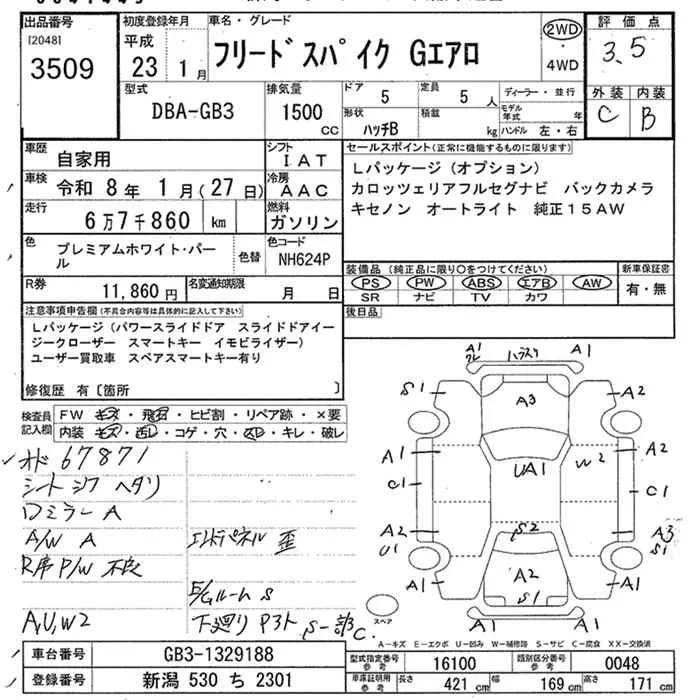 出品番号
[2048]
3509
初度登録年月
平成
23 1月
車名・グレード
フリードスパイク Gエアロ
2WD
・
4WD
評価点
3.5
外装 内装
C B
型式
DBA-GB3
排気量
1500
CC
ドア 5
定員 5人
形状 ハッチB
積載 kg
ディーラー・並行
モデル年式 年
ハンドル 左・右
車歴
自家用
シフト
IAT
車検
令和 8年 1月(27日)
冷房
AAC
走行
6万7千860 km
燃料
ガソリン
色
プレミアムホワイト・パール
色替
色コード
NH624P
R券
11,860円
名変通知期限
月 日
セールスポイント(正常に機能するものに限ります)
Lパッケージ(オプション)
カロッツェリアフルセグナビ バックカメラ
キセノン オートライト 純正15AW
装備品(純正品に限り○をつけてください)
PS PW ABS エアB AW
SR ナビ TV カワ
新車保証書
有・無
後日品
注意事項申告欄(不具合内容等は具体的に記入して下さい)
Lパッケージ(パワースライドドア スライドドアイー
ジークローザー スマートキー イモビライザー)
ユーザー買取車 スペアスマートキー有り
修復歴 有〔箇所 〕
検査員
記入欄
FW キズ・飛石・ヒビ割・リペア跡・×要
内装 キズ・汚レ・コゲ・穴・スレ・キレ・破レ
オド 67871
シートシワ ヘタリ
ロミラー A
A/W A
エンドパネル 歪
R席 P/W 不良
E/Gルーム S
A,U,W2
下廻り P3ト S-部C
A1
A1
S1
A3
A2
A1
UA1
W2
A2
C1
C1
A2
S2
A3
U1
S1
A1
A2
A1
S1
A1
A1
スペア
A-キズ E-エクボ U-凹み W-補修跡 S-サビ C-腐食 XX-交換済
車台番号
GB3-1329188
登録番号
新潟 530 ち 2301
型式指定番号
参考
16100
類別区分番号
参考
0048
車庫証明用
参考
長さ 421cm
幅 169cm
高さ 171cm